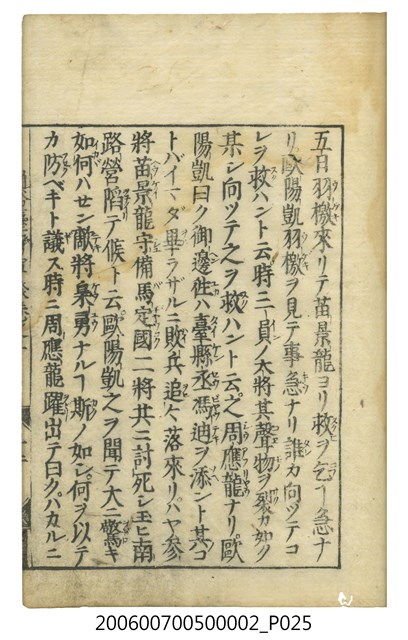 五日羽檄來リテ苗景龍ヨリ救ヲ乞フ急ナ
リ歐陽凱羽檄ヲ見テ事急ナリ誰カ向ツテコ
レヲ救ハント云時ニ一員ノ大將其聲物ヲ裂カ如ク
某シ向ツテ之ヲ救ハント云之周應龍ナリ歐
陽凱曰ク御邊徃ハ臺縣丞馮迪ヲ添ント其コ
トバイマダ畢ラザルニ敗兵追々落來リハヤ參
將苗景龍守備馬定國二將共ニ討死シ玉ヒ南
路營陷テ候ト云歐陽凱之ヲ聞テ大ニ驚キ
如何ハセン敵將梟勇ナルー斯ノ如シ何ヲ以テ
カ防ベキト議ス時ニ周應龍躍出テ曰クハカルニ
200600700500002_P025